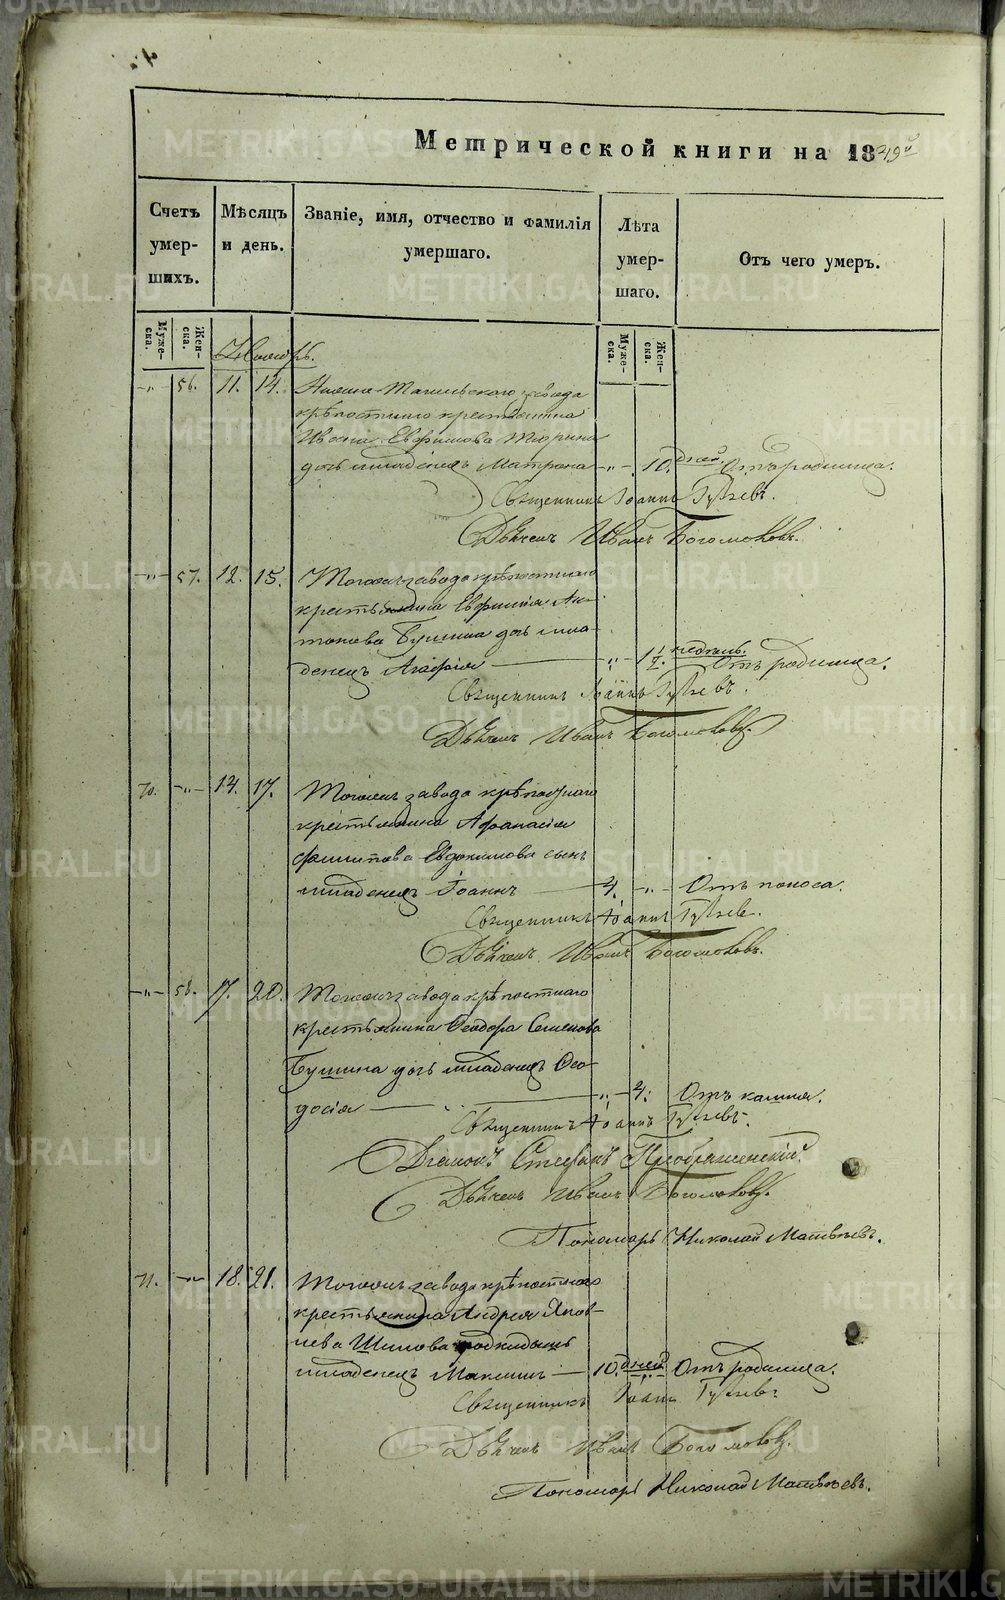 Метрической книги на 1849й
Счетъ умер- шихъ.
Мѣсяцъ и день.
Званіе, имя, отчество и фамилія умершаго.
Лѣта умер- шаго.
Отъ чего умеръ.
Муже- ска.
Жен- ска.
Муже- ска.
Жен- ска.
Ноябрь.
-„- 56. 11. 14. Нижне-Тагильскаго завода
крѣпостнаго крестьянина
Ивана Евфимова
дочь младенецъ Матрона -„- 10. дней. Отъ родимца.
Священникъ Іоаннъ
Дьячекъ Иванъ Богомоловъ.
-„- 57. 12. 15. Тогожъ завода крѣпостнаго
крестьянина Евфимія Ан-
тонова Бушина дочь мла-
денецъ Агафія -„- 1 1/2. недѣль. Отъ родимца.
Священникъ Іоаннъ
Дьячекъ Иванъ Богомоловъ.
70. -„- 14. 17. Тогожъ завода крѣпостнаго
крестьянина Афанасія
Филиппова Евдокимова сынъ
младенецъ Іоаннъ 4. -„- Отъ поноса.
Священникъ Іоаннъ
Дьячекъ Иванъ Богомоловъ.
-„- 58. 17. 20. Тогожъ завода крѣпостнаго
крестьянина Ѳеодора Семенова
Бушина дочь младенецъ Ѳео-
досія -„- 4. Отъ кашля.
Священникъ Іоаннъ
Діаконъ Стефанъ Преображенскій.
Дьячекъ Иванъ Богомоловъ.
Пономарь Николай Матвѣевъ.
71. -„- 18. 21. Тогожъ завода крѣпостнаго
крестьянина Андрея Яков-
лева Шилова подкидышъ
младенецъ Максимъ 10. дней Отъ родимца.
Священникъ Іоаннъ
Дьячекъ Иванъ Богомоловъ.
Пономарь Николай Матвѣевъ.
METRIKI.GASO-URAL.RU